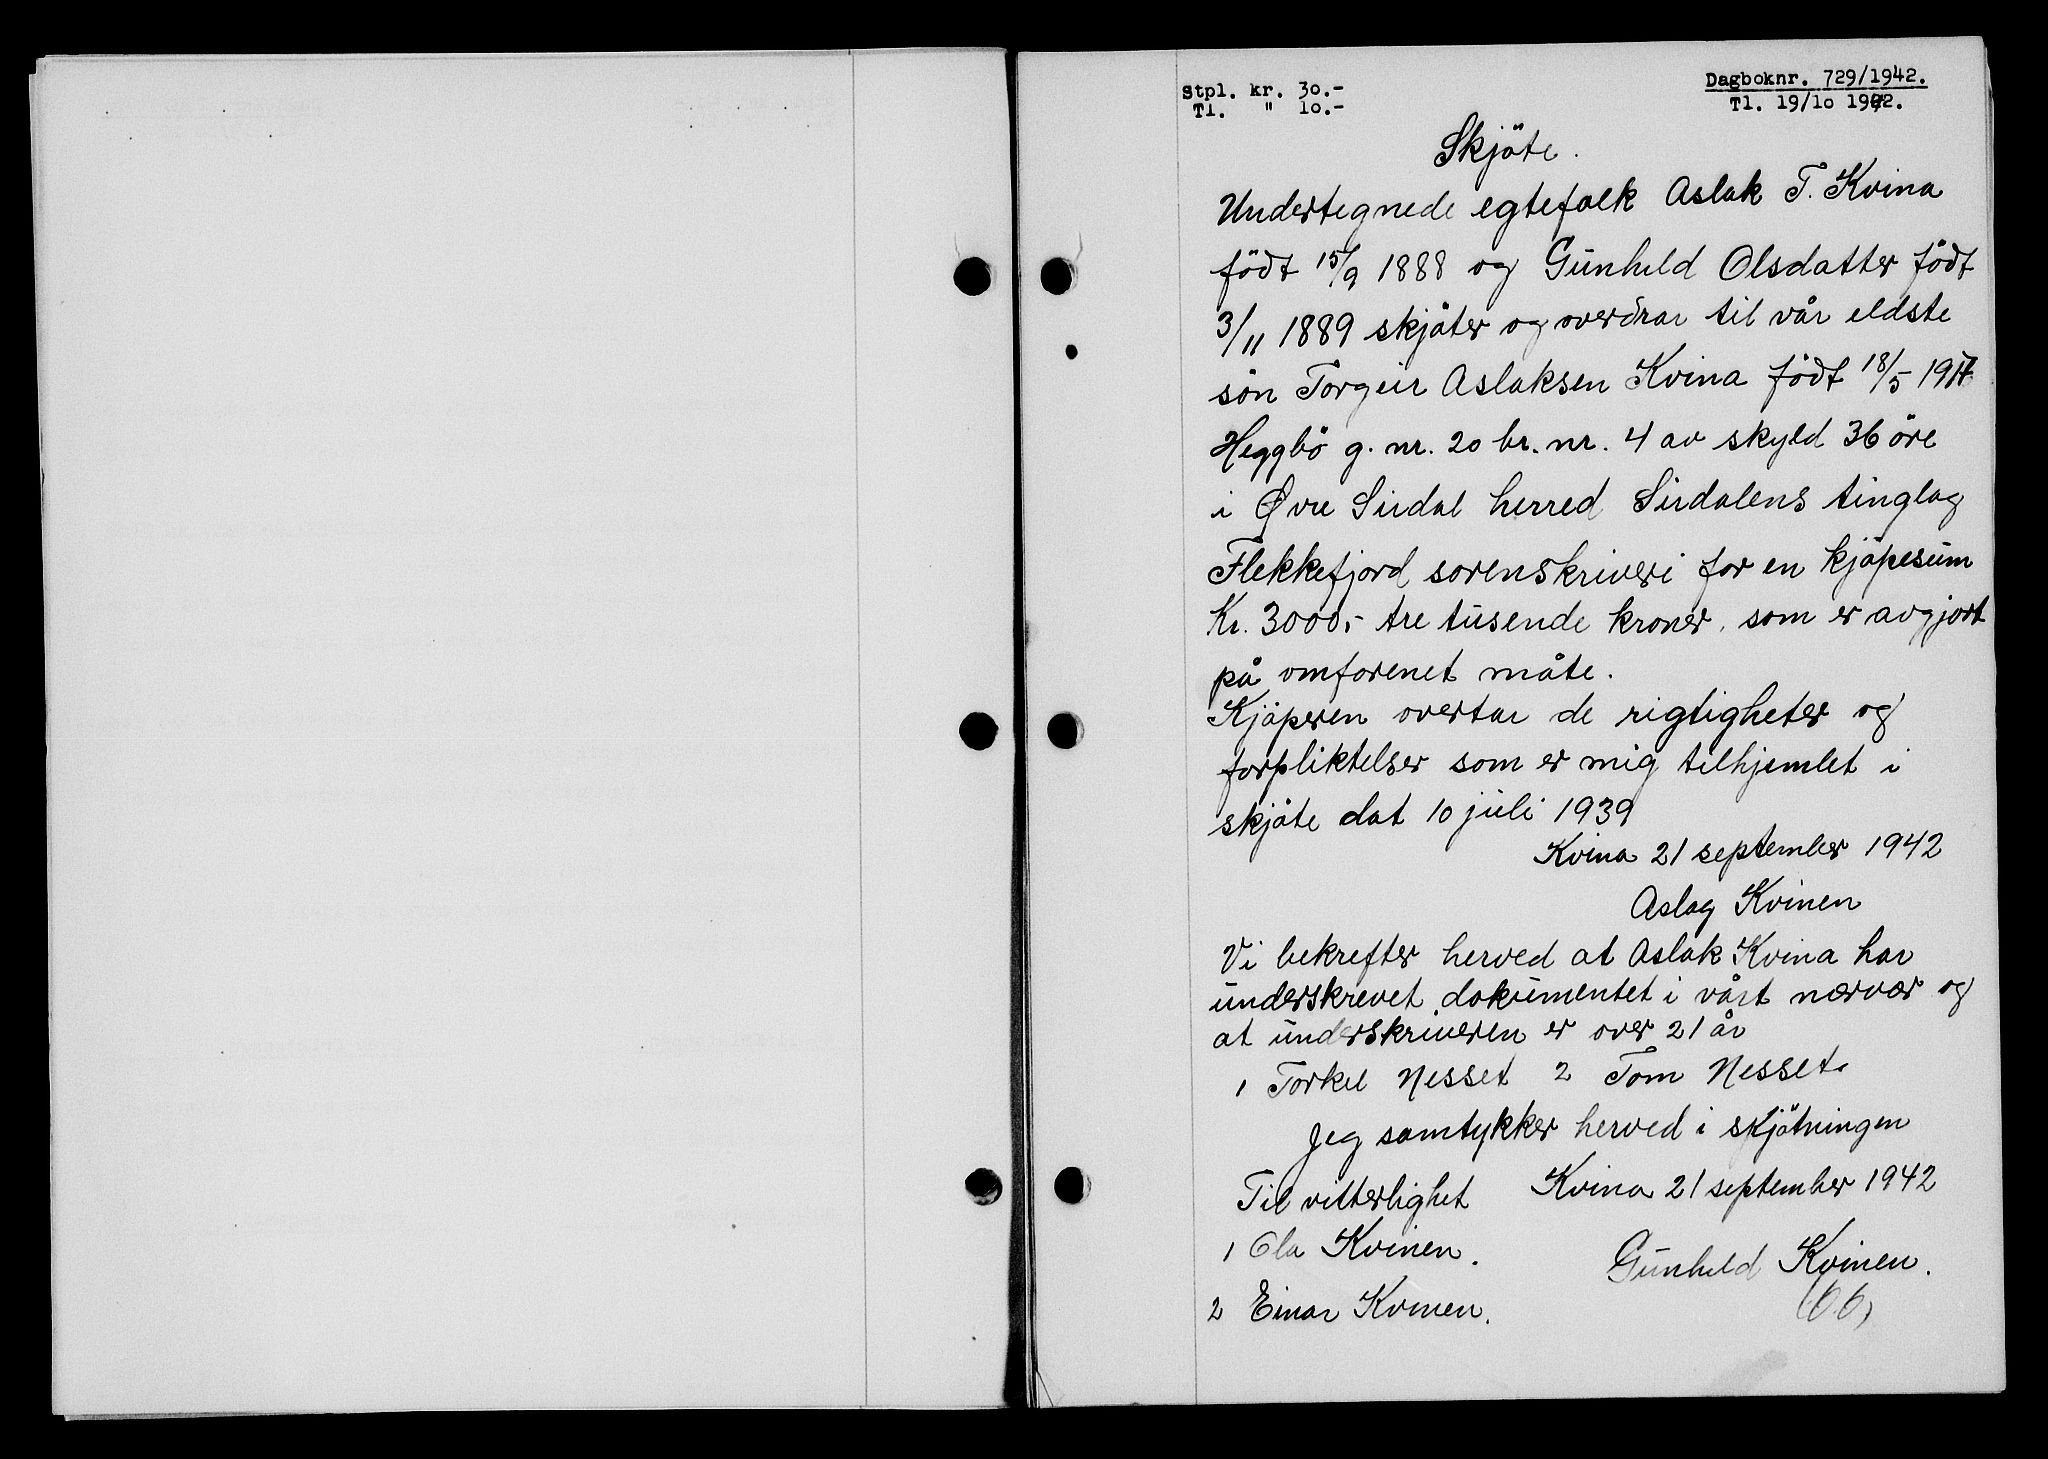 Stpl. kr. 30.-
Tl. " 10.-
Dagboknr. 729/1942.
Tl. 19/10 1942.
Skjöte.
Undertegnede egtefolk Aslak T. Kvina
född 15/9 1888 og Gunhild Olsdatter födt
3/11 1889 skjöter og overdrar til vår eldste
sön Torgeir Aslaksen Kvina födt 18/5 1917
Heggbö g. nr. 20 br. nr. 4 av skyld 36 öre
i Øvre Sirdal herred Sirdalens tinglag
Flekkefjord sorenskriveri for en kjöpesum
Kr. 3000,- tre tusende kroner, som er avgjort
på omforenet måte.
Kjöperen overtar de rigtigheter og
forpliktelser som er mig tilhjemlet i
skjöte dat 10 juli 1939
Kvina 21 september 1942
Aslag Kvinen
Vi bekrefter herved at Aslak Kvina har
underskrevet dokumentet i vårt nærvær og
at underskriveren er over 21 år
1 Torkel Nesset 2 Tom Nesset.
Jeg samtykker herved i skjötningen
Til vitterlighet Kvina 21 september 1942
1 Ola Kvinen.
Gunhild Kvinen.
2 Einar Kvinen.